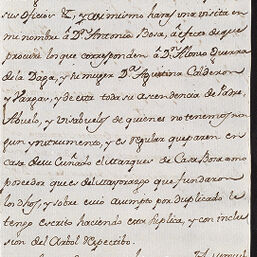 sus oficios &, y asi mismo hara una visita en
mi nombre à Dn Antonio Bosa, à efecto de que
procure los que corresponden à Dn Alonso Guerra
de la Dapa, y su muger Da Agustina Calderon
y Vargas, y de esta toda su ascendencia de Padre,
Abuelo, y visabuelos de quienes no tenemos nin
gun ynstrumento, y es regular que paren en
casa de su Cuñado el Marques de Casa Bosa como
poseedor que es del Mayorazgo que fundaron
los dhos, y sobre cuio asumpto por duplicado le
tengo escrito haciendo esta suplica, y con inclu
sion del Arbol Respectibo.